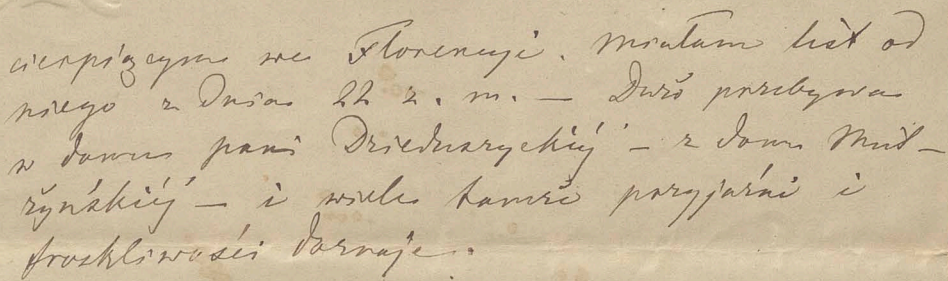 cierpiącym we Florencyi. Miałam list od
niego z dnia 22 z. m. — Dziś przebywa
w domu pani Dzieduszyckiéj — z domu
— i wiele tamże przyjaźni i
troskliwości doznaje.